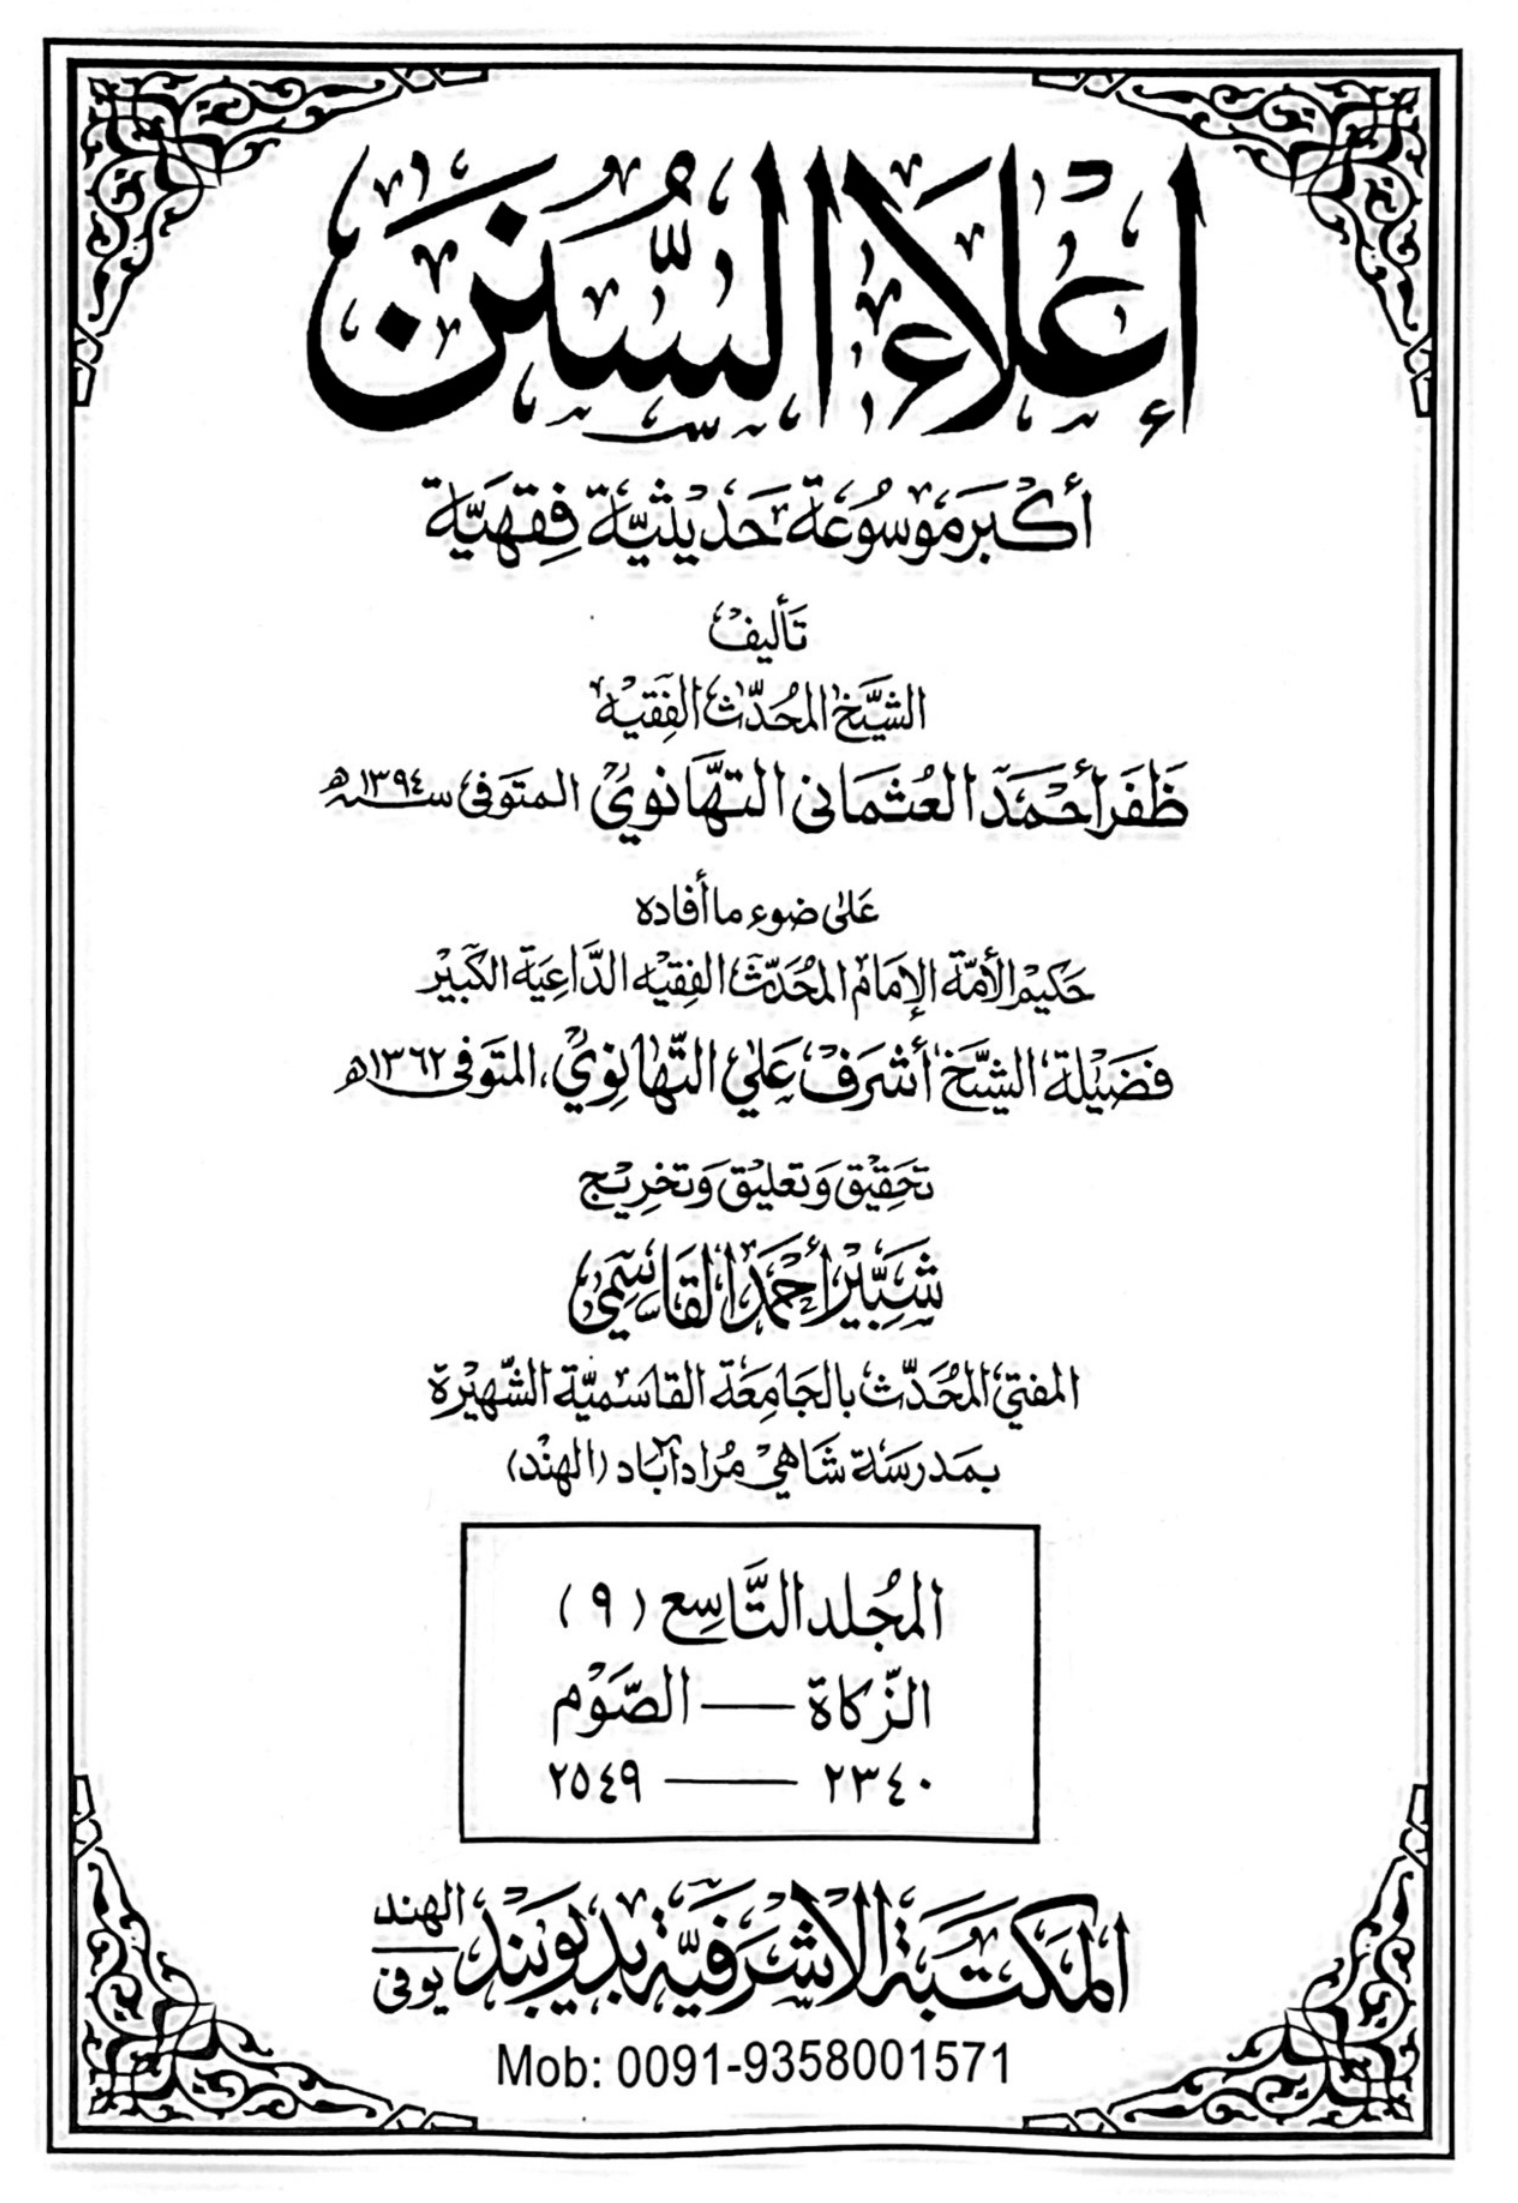 إعْلَاءُ السُّنَن
أكبر موسوعة حديثية فقهية
تأليف
الشيخ المحدث الفقيه
ظفر أحمد العثماني التهانوي المتوفى سنة ١٣٩٤ھ
على ضوء ما أفاده
حكيم الأمة الإمام المحدث الفقيه الداعية الكبير
فضيلة الشيخ أشرف علي التهانوي، المتوفى ١٣٦٢ھ
تحقيق وتعليق وتخريج
شبير أحمد القاسمي
المفتي المحدث بالجامعة القاسمية الشهيرة
بمدرسة شاهي مرادآباد (الهند)
المجلد التاسع (٩)
الزكاة — الصوم
٢٣٤٠ — ٢٥٤٩
المكتبة الاشرفية بديوبند يوفى الهند
Mob: 0091-9358001571